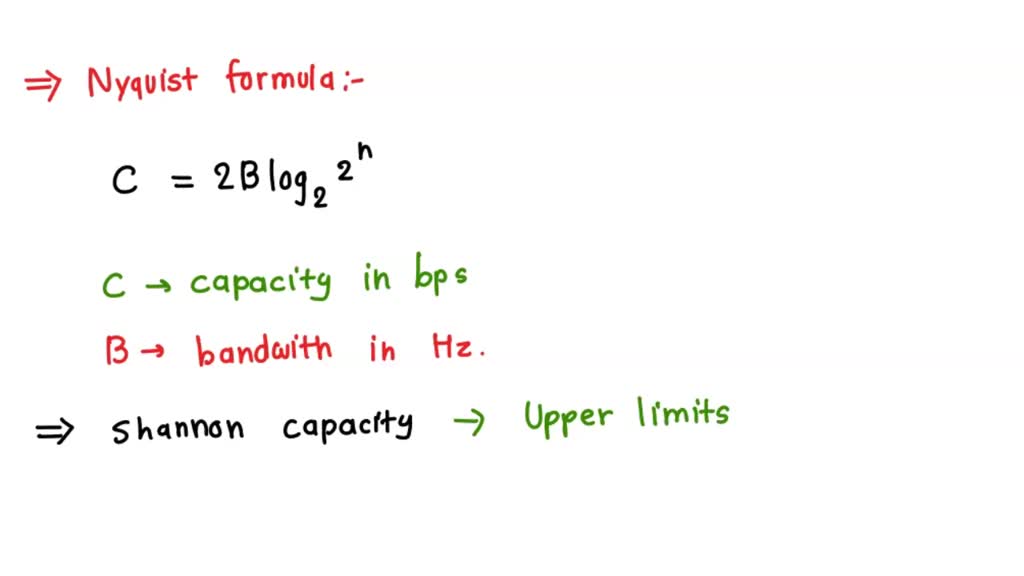 ⇒ Nyquist formula:-
C = 2B log₂ 2ⁿ
C → capacity in bps
B → bandwith in Hz.
⇒ Shannon capacity → Upper limits